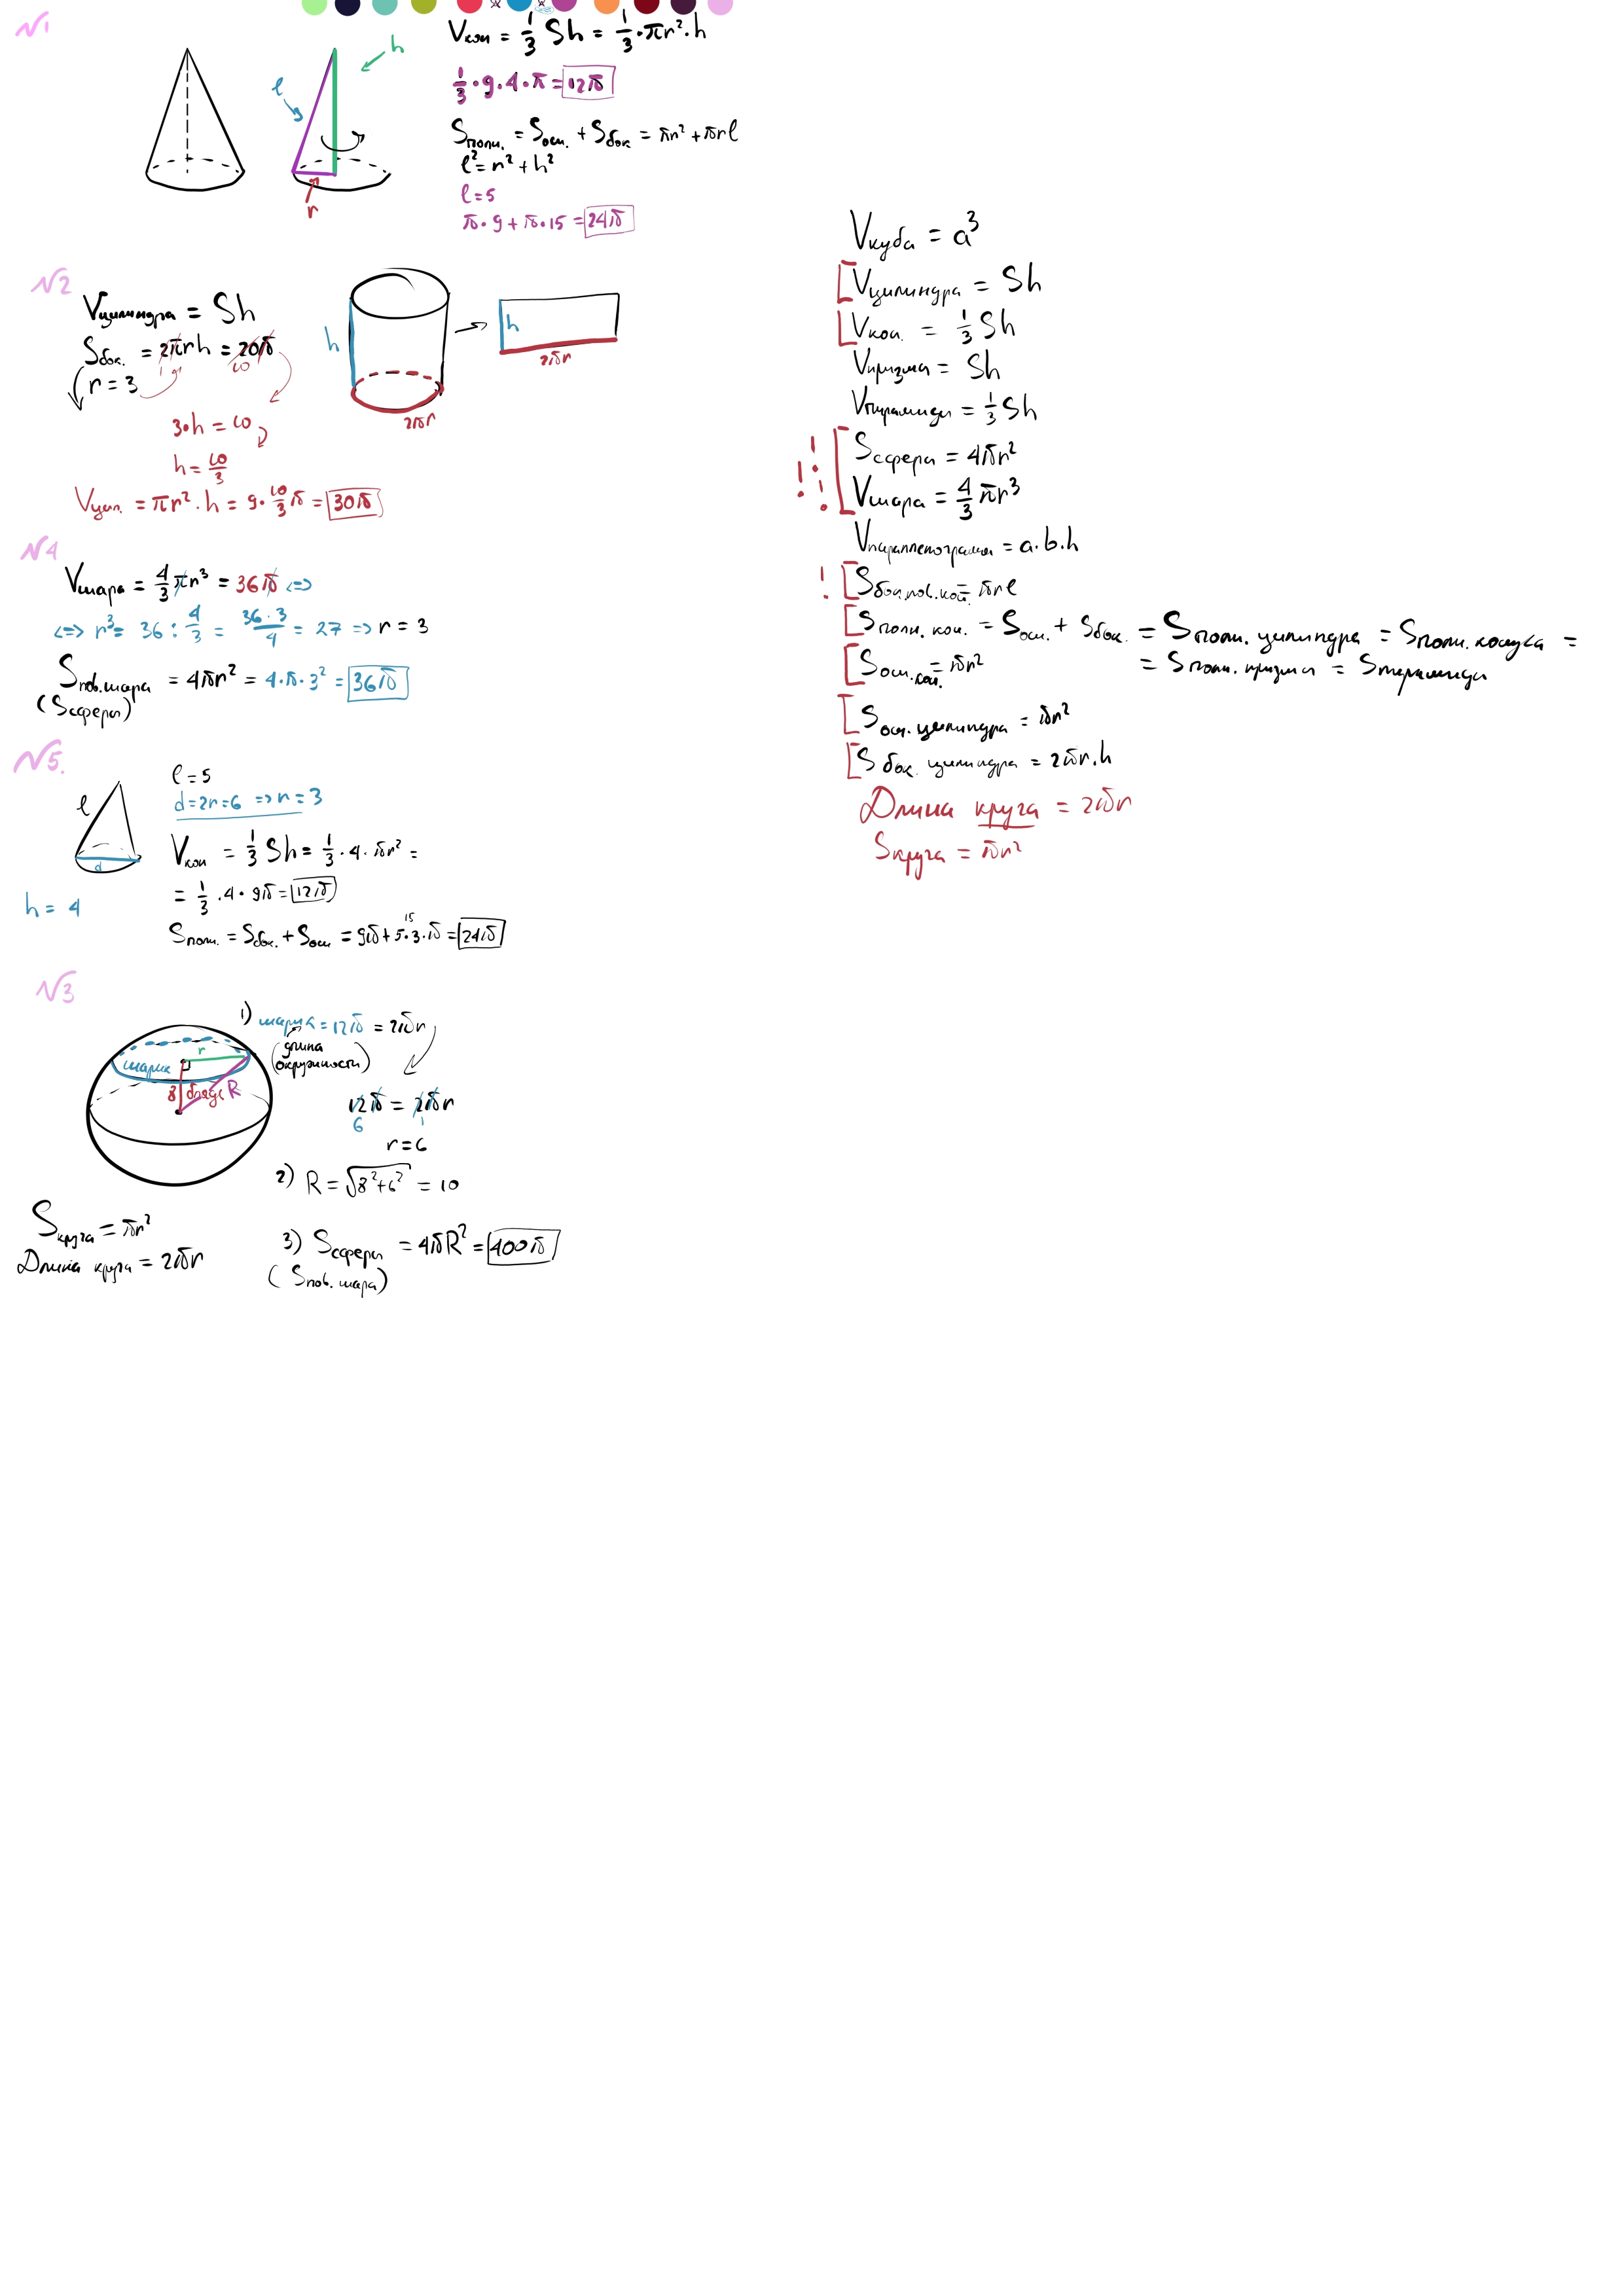 №1
h
l
r
Vкон = 1/3 Sh = 1/3 · πr² · h
1/3 · 9 · 4 · π = 12π
Sполн. = Sосн. + Sбок. = πr² + πrl
l² = r² + h²
l = 5
π · 9 + π · 15 = 24π
№2
Vцилиндра = Sh
Sбок. = 2πrh = 20π
1 1 10
r = 3
3·h = 10
h = 10/3
Vцил. = πr² · h = 9 · 10/3 π = 30π
h
2πr
h
2πr
№4
Vшара = 4/3 πr³ = 36π <=>
<=> r³ = 36 : 4/3 = 36·3/4 = 27 => r = 3
Sпов.шара = 4πr² = 4·π·3² = 36π
(Sсферы)
№5.
l
d
h = 4
l = 5
d = 2r = 6 => r = 3
Vкон = 1/3 Sh = 1/3 · 4 · πr² =
= 1/3 · 4 · 9π = 12π
15
Sполн. = Sбок. + Sосн = 9π + 5·3·π = 24π
№3
r
8
R
1)
= 12π = 2πr
(длина окружности)
12π = 2πr
6 1
r = 6
2) R = √8²+6² = 10
3) Sсферы = 4πR² = 400π
(Sпов. шара)
Sкруга = πr²
Длина круга = 2πr
Vкуба = a³
Vцилиндра = Sh
Vкон. = 1/3 Sh
Vпризмы = Sh
Vпирамиды = 1/3 Sh
! ! ! Sсфера = 4πr²
Vшара = 4/3 πr³
Vпараллепограмм = a·b·h
! Sбок.пов.кон. = πrl
Sполн. кон. = Sосн. + Sбок. = Sполн. цилиндра = Sполн. конуса =
= Sполн. призмы = Sпирамиды
Sосн.кон. = πr²
Sосн. цилиндра = πr²
Sбок. цилиндра = 2πr·h
Длина круга = 2πr
Sкруга = πr²